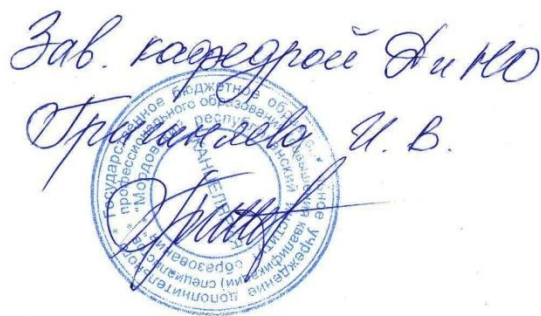 Зав. кафедрой ДиНО
И. В.
государственное бюджетное образовательное учреждение
дополнительного профессионального образования (повышения квалификации) специалистов
"Мордовский республиканский институт образования"
КАНЦЕЛЯРИЯ